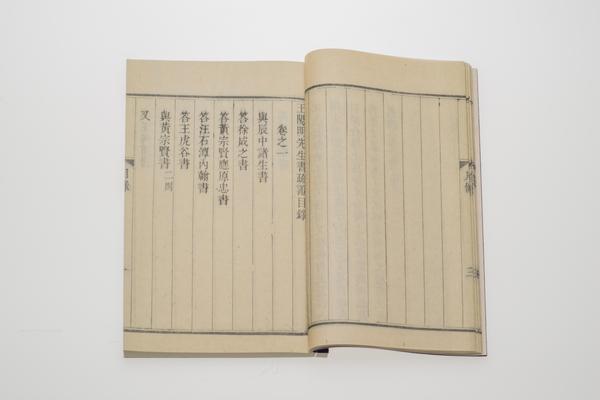 三
王陽明先生書疏證目錄
卷之一
與辰中諸生書
答徐成之書
答黃宗賢應原忠書
答汪石潭內翰書
答王虎谷書
與黃宗賢書二
又
目錄